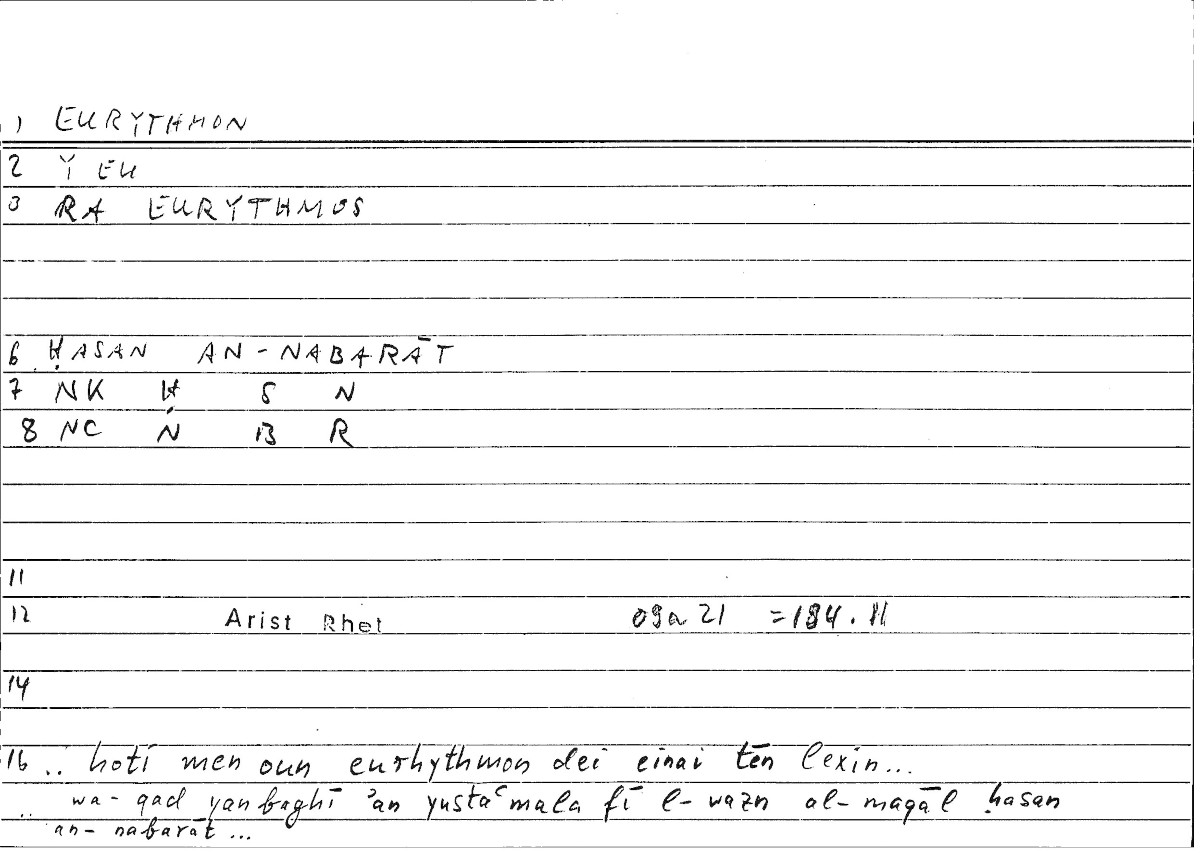 1 EURYTHMON
2 Y EU
3 RA EURYTHMOS
6 ḤASAN AN-NABARĀT
7 NK Ḥ S N
8 NC N B R
11
12 Arist Rhet 09a 21 =184.11
14
16 .. hoti men oun eurhythmon dei einai tēn lexin...
.. wa-qad yanbaghī ʾan yustaʿmala fī l-wazn al-maqāl ḥasan
an-nabarāt ...